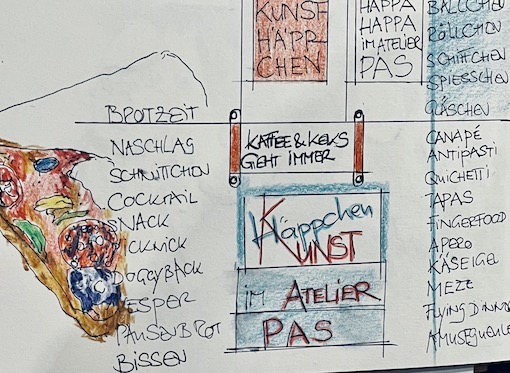 KUNST
HÄPP-
CHEN
HAPPA
HAPPA
iM ATELIER
PAS
BÄLLCHEN
RÖLLCHEN
SCHITTCHEN
SPIESSCHEN
GLÄSCHEN
BROTZEIT
NASCHLAG
SCHNITTCHEN
COCKTAIL
SNACK
PICKNICK
DOGGYBÄCK
VESPER
PAUSENBROT
BISSEN
KAFFEE & KEKS
GEHT IMMER
Häppchen
KUNST
iM ATELIER
PAS
CANAPÉ
ANTIPASTI
QUICHETTI
TAPAS
FINGERFOOD
APERO
KÄSEIGEL
MEZE
FLYING DINNE
AMUSEGUEULE